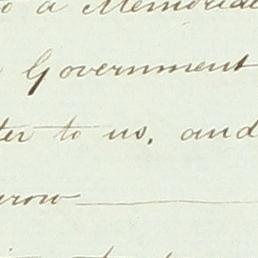 to a Memorial
Government
ter to us, and
row